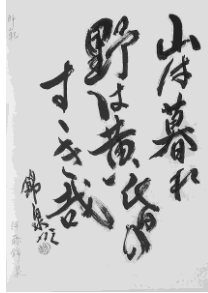 山は暮れ
野は黄昏の
すゝき哉
錦泉臨